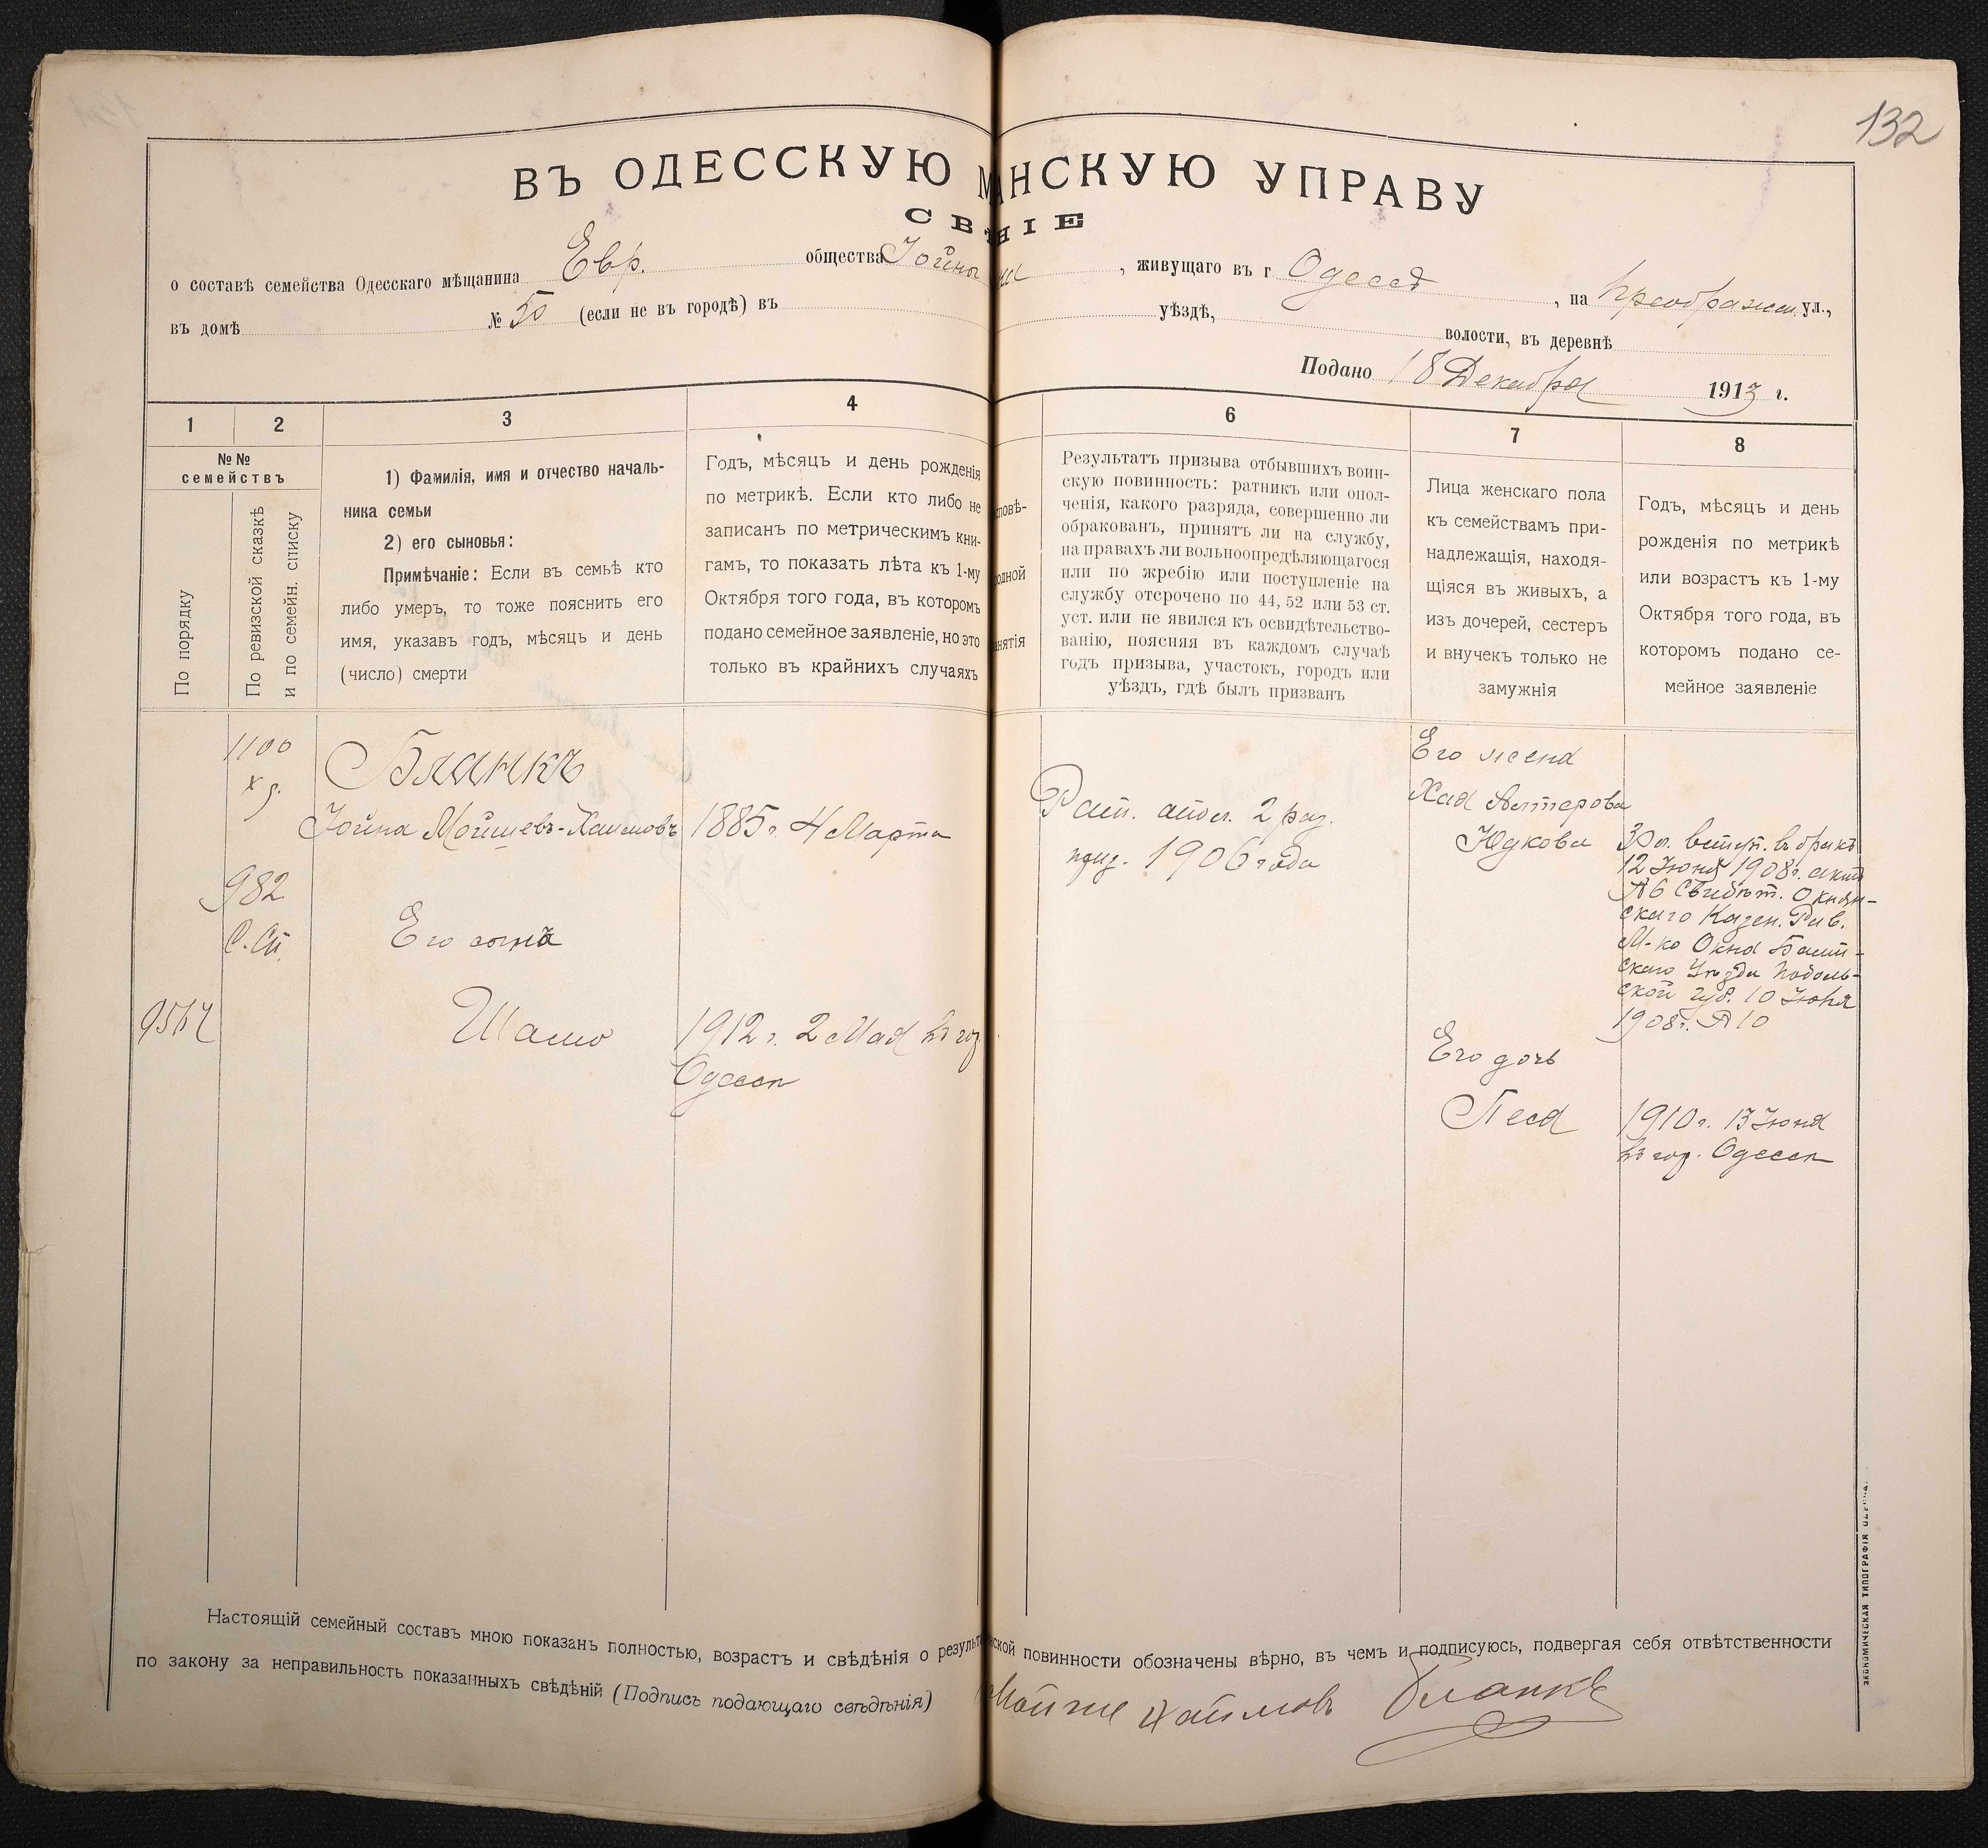 132
ВЪ ОДЕССКУЮ М НСКУЮ УПРАВУ
СВ НІЕ
о составѣ семейства Одесскаго мѣщанина Евр. общества Іойны , живущаго въ г Одессѣ , на Преображен. ул.,
въ домѣ № 50 (если не въ городѣ) въ уѣздѣ, волости, въ деревнѣ
Подано 18 Декабря 1913 г.
1 2 3 4 6 7 8
№№ семействъ
По порядку
По ревизской сказкѣ
и по семейн. списку
1) Фамилія, имя и отчество началь-
ника семьи
2) его сыновья:
Примѣчаніе: Если въ семьѣ кто
либо умеръ, то тоже пояснить его
имя, указавъ годъ, мѣсяцъ и день
(число) смерти
Годъ, мѣсяцъ и день рожденія
по метрикѣ. Если кто либо не
записанъ по метрическимъ кни-
гамъ, то показать лѣта къ 1-му
Октября того года, въ которомъ
подано семейное заявленіе, но это
только въ крайнихъ случаяхъ
повѣ-
одной
анятія
Результатъ призыва отбывшихъ воин-
скую повинность: ратникъ или опол-
ченія, какого разряда, совершенно ли
обракованъ, принятъ ли на службу,
на правахъ ли вольноопредѣляющагося
или по жребію или поступленіе на
службу отсрочено по 44, 52 или 53 ст.
уст. или не явился къ освидѣтельство-
ванію, поясняя въ каждомъ случаѣ
годъ призыва, участокъ, городъ или
уѣздъ, гдѣ былъ призванъ
Лица женскаго пола
къ семействамъ при-
надлежащія, находя-
щіяся въ живыхъ, а
изъ дочерей, сестеръ
и внучекъ только не
замужнія
Годъ, мѣсяцъ и день
рожденія по метрикѣ
или возрастъ къ 1-му
Октября того года, въ
которомъ подано се-
мейное заявленіе
1100
Бланкъ
Іойна Мойшевъ-Хаимовъ
1885 г. 4 Марта
982
С. Сп.
Его сынъ
9517
Шамо
1912 г. 2 Мая въ гор.
Одессѣ
Рат. опол. 2 раз.
приз. 1906 года
Его жена
Хая Алтерова
Юдкова
30 л. вступ. въ бракъ
12 Іюня 1908 г. актъ
№ 6 Свидѣт. Окнян-
скаго Казен. Рав.
М-ко Окна Балт-
скаго Уѣзда Подоль-
ской губ. 10 Іюня
1908 г. № 10
Его дочь
Песя
1910 г. 13 Іюня
въ гор. Одессѣ
Настоящій семейный составъ мною показанъ полностью, возрастъ и свѣдѣнія о результ нской повинности обозначены вѣрно, въ чемъ и подписуюсь, подвергая себя отвѣтственности
по закону за неправильность показанныхъ свѣдѣній (Подпись подающаго свѣдѣнія) Мойше Хаимовъ Бланкъ
ЭКОНОМИЧЕСКАЯ ТИПОГРАФІЯ ОДЕССА.